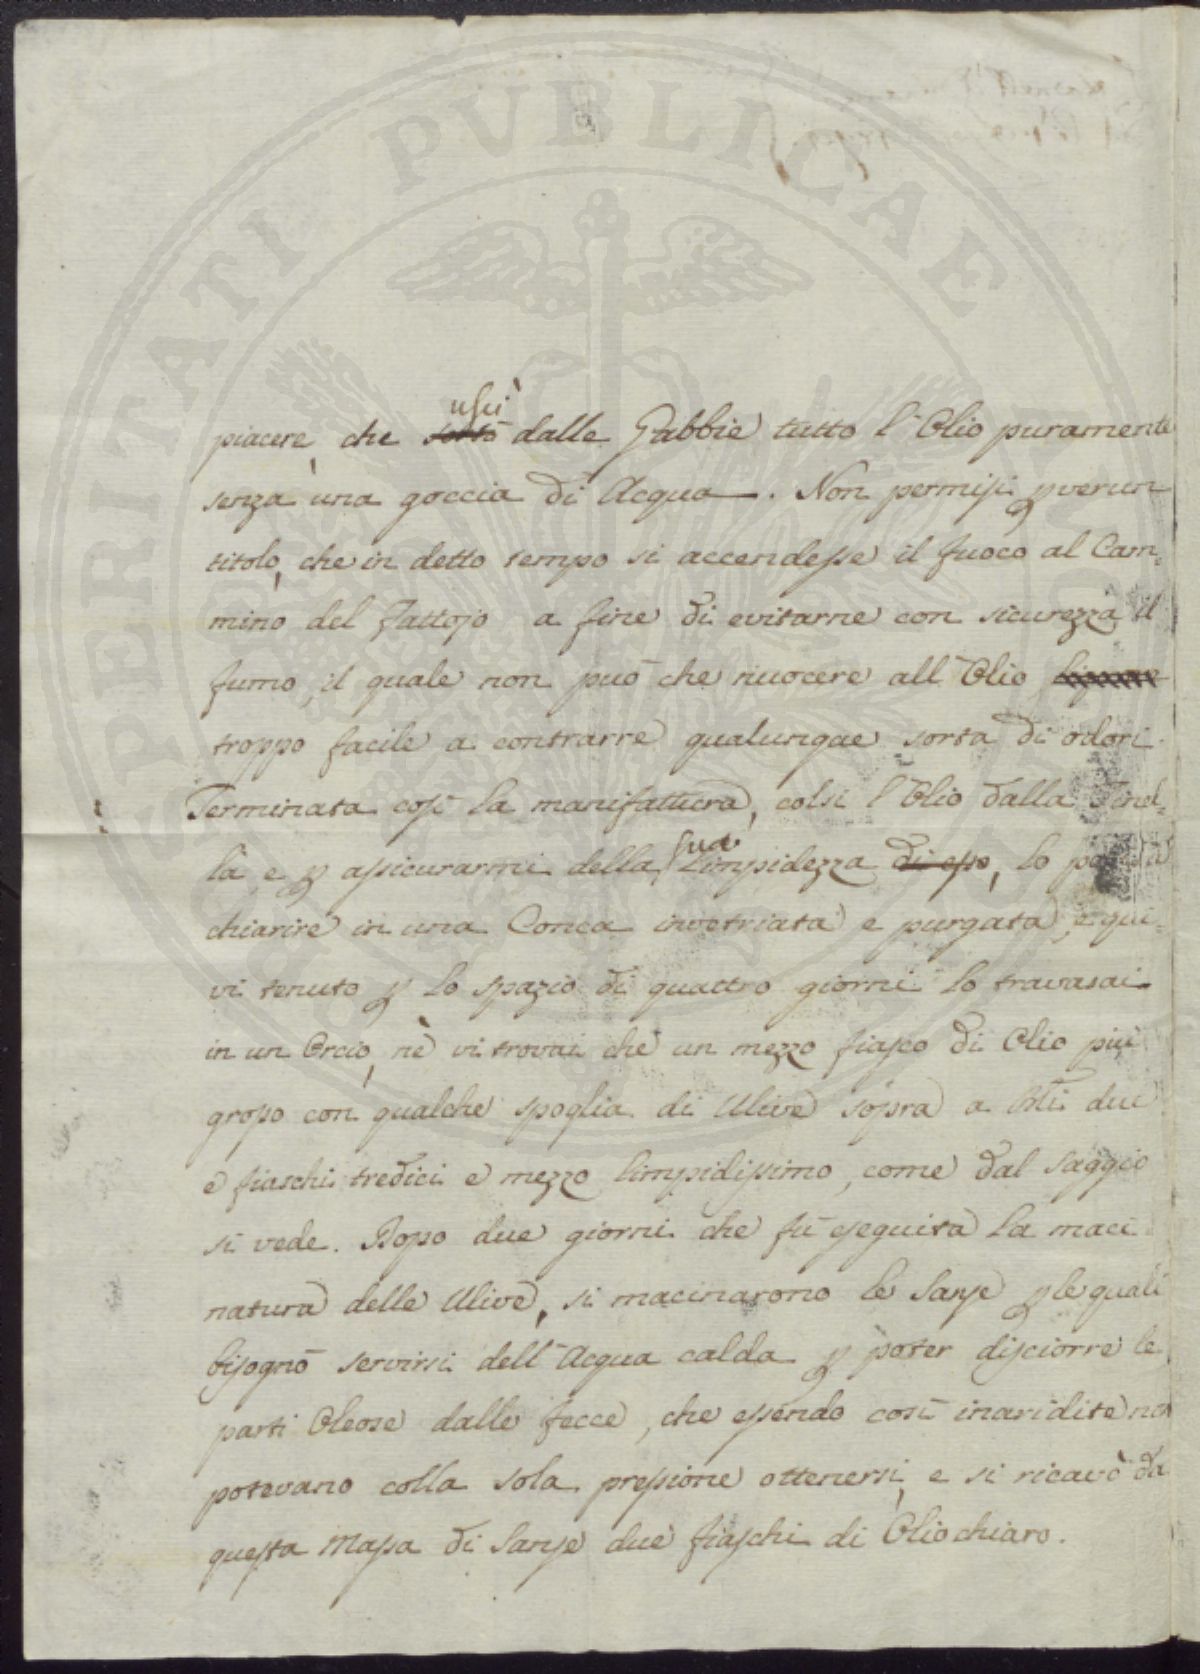 PROSPERITATI PUBLICAE AUGENDAE
uscì
piacere, che sortò dalle Gabbie tutto l'Olio puramente
senza una goccia di Acqua. Non permisi p verun
titolo, che in detto tempo si accendesse il fuoco al Cam-
mino del Fattojo a fine di evitarne con sicurezza il
fumo, il quale non può che nuocere all'Olio
troppo facile a contrarre qualunque sorta di odori.
Terminata così la manifattura, colsi l'Olio dalla Tinel-
la, e p assicurarmi della sua Limpidezza di esso, lo
chiarire in una Conca invetriata e purgata, e qui-
vi tenuto p lo spazio di quattro giorni lo travasai
in un Orcio, nè vi trovai che un mezzo fiasco di Olio più
grosso con qualche spoglia di Ulive sopra a Orci due
e fiaschi tredici e mezzo limpidissimo, come dal Saggio
si vede. Dopo due giorni che fù eseguita la maci
natura delle Ulive, si macinarono le Sanse p le quali
bisognò servirsi dell'Acqua calda p poter disciorre le
parti Oleose dalle fecce, che essendo così inaridite non
potevano colla sola pressione ottenersi, e si ricavò da
questa Massa di Sanse due fiaschi di Olio chiaro.